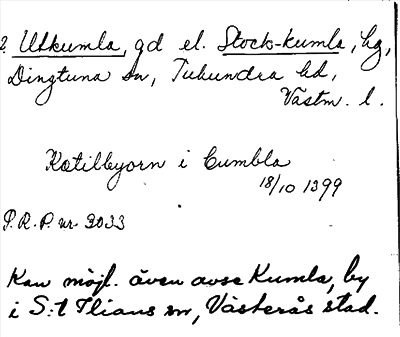 2. Utkumla, gd el. Stock-kumla, hg,
Dingtuna sn, Tuhundra hd,
Västm. l.
Kætilbyorn i Cumbla
18/10 1399
P.R.P. nr. 3033
Kan möjl. även avse Kumla, by
i S:t Ilians sn, Västerås stad.